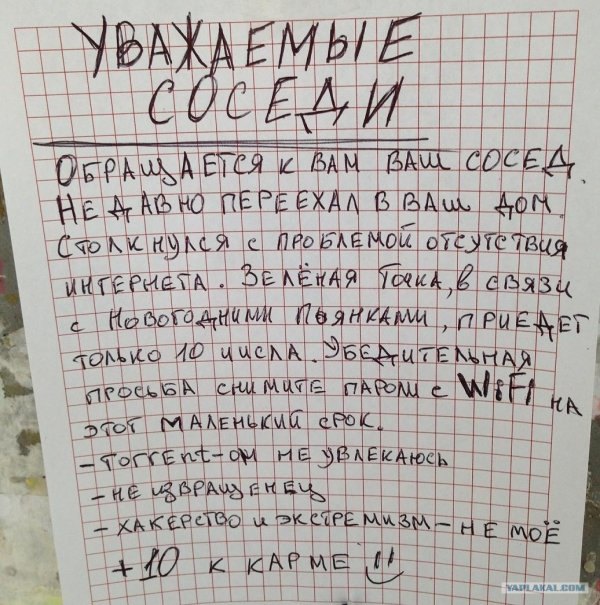 УВАЖАЕМЫЕ
СОСЕДИ
ОБРАЩАЕТСЯ К ВАМ ВАШ СОСЕД.
НЕДАВНО ПЕРЕЕХАЛ В ВАШ ДОМ.
СТОЛКНУЛСЯ С ПРОБЛЕМОЙ ОТСУТСТВИЯ
ИНТЕРНЕТА. ЗЕЛЁНАЯ ТОЧКА, В СВЯЗИ
С НОВОГОДНИМИ ПЬЯНКАМИ, ПРИЕДЕТ
ТОЛЬКО 10 ЧИСЛА. УБЕДИТЕЛЬНАЯ
ПРОСЬБА СНИМИТЕ ПАРОЛИ С WiFi НА
ЭТОТ МАЛЕНЬКИЙ СРОК.
- TORRENT-ОМ НЕ УВЛЕКАЮСЬ
- НЕ ИЗВРАЩЕНЕЦ
- ХАКЕРСТВО И ЭКСТРЕМИЗМ - НЕ МОЁ
+10 К КАРМЕ
YAPLAKAL.COM